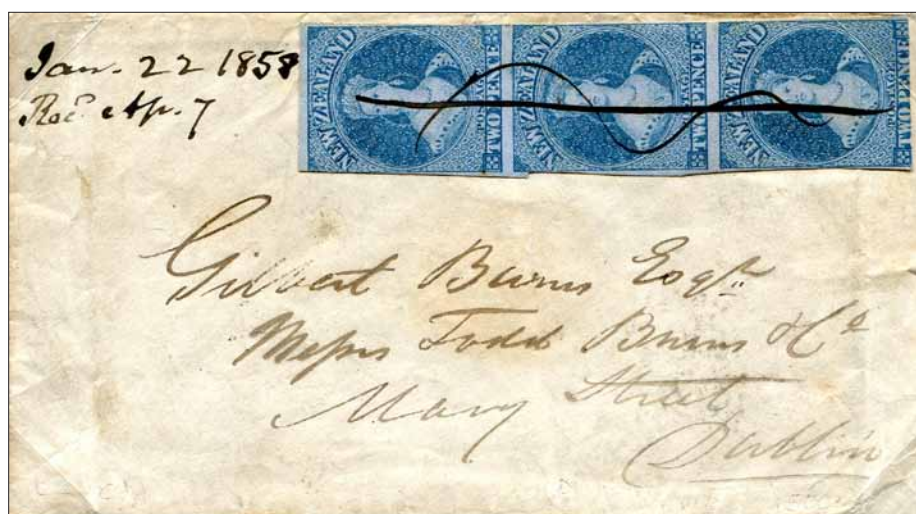 Jan. 22 1858
Recd Ap. 7
NEW ZEALAND
POSTAGE
TWO PENCE
NEW ZEALAND
POSTAGE
TWO PENCE
NEW ZEALAND
POSTAGE
TWO PENCE
Gilbert Burns Esqr.
Messrs Todd Burns & Co
Mary Street
Dublin